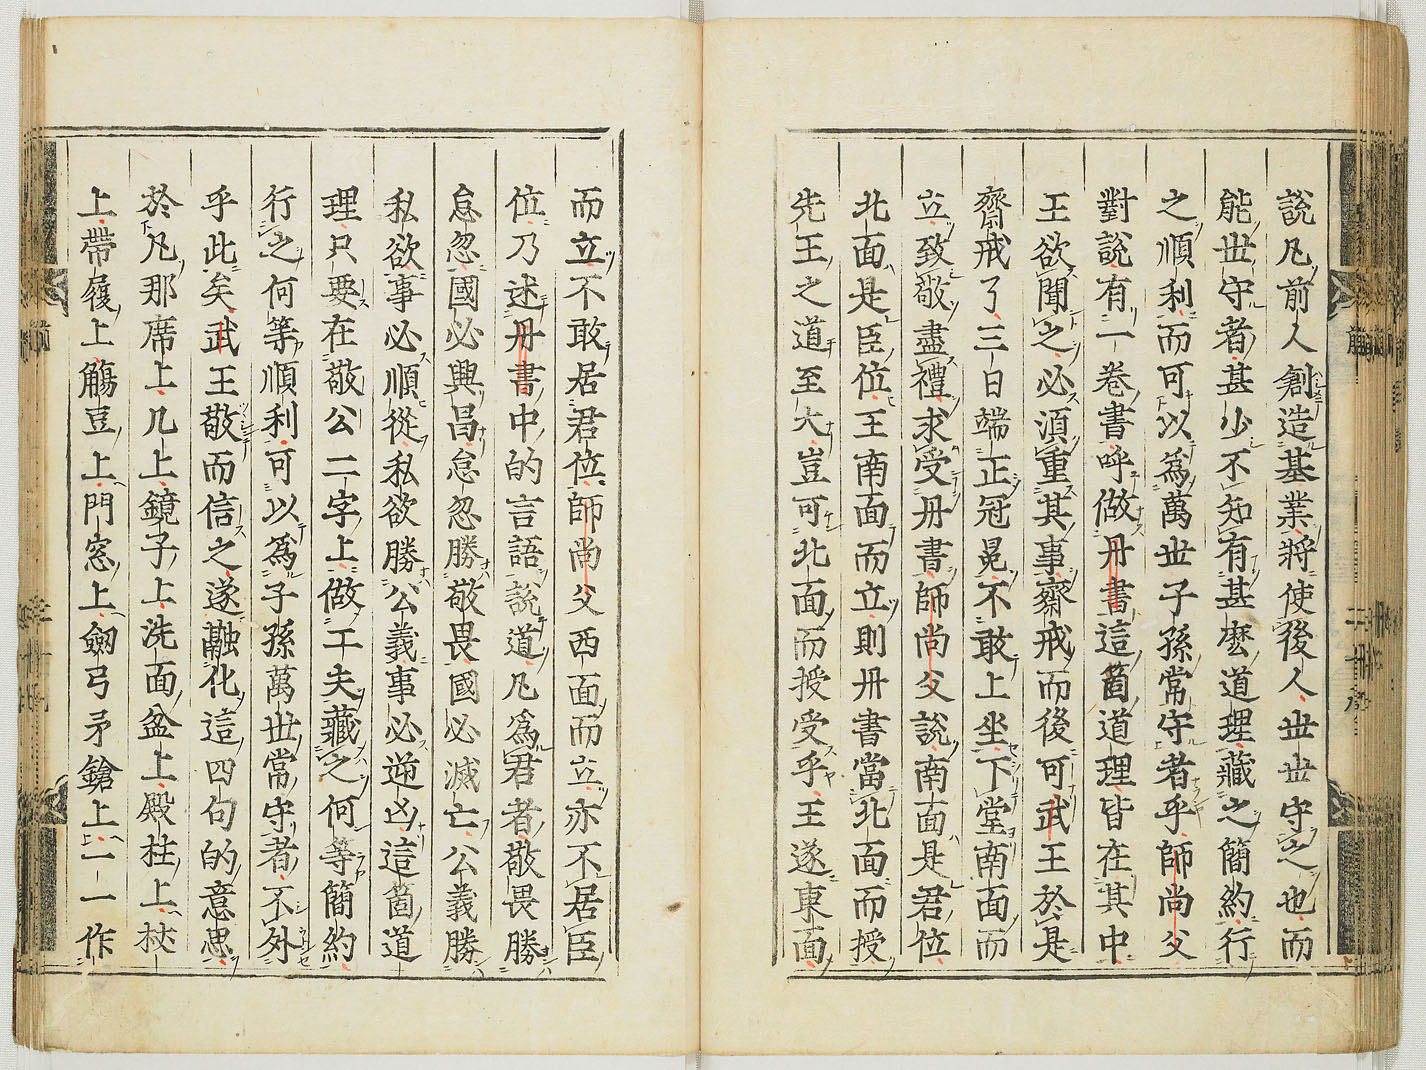 説凡前人創造基業將使後人世世守之也而
能世守者甚少不知有甚麽道理藏之簡約行
之順利而可以爲萬世子孫常守者乎師尚父
對説有一卷書呼做丹書這箇道理皆在其中
王欲聞之必湏重其事齋戒而後可武王於是
齋戒了三日端正冠冕不敢上坐下堂南面而
立致敬盡禮求受丹書師尚父説南面是君位
北面是臣位王南面而立則丹書當北面而授
先王之道至大豈可北面而授受乎王遂東面
而立不敢居君位師尚父西面而立亦不居臣
位乃述丹書中的言語説道凡爲君者敬畏勝
怠忽國必興昌怠忽勝敬畏國必滅亡公義勝
私欲事必順從私欲勝公義事必逆凶這箇道
理只要在敬公二字上做工夫藏之何等簡約
行之何等順利可以爲子孫萬世常守者不外
乎此矣武王敬而信之遂融化這四句的意思
於凡那席上几上鏡子上洗面盆上殿柱上杖
上帶履上觴豆上門窓上劒弓矛鎗上一一作